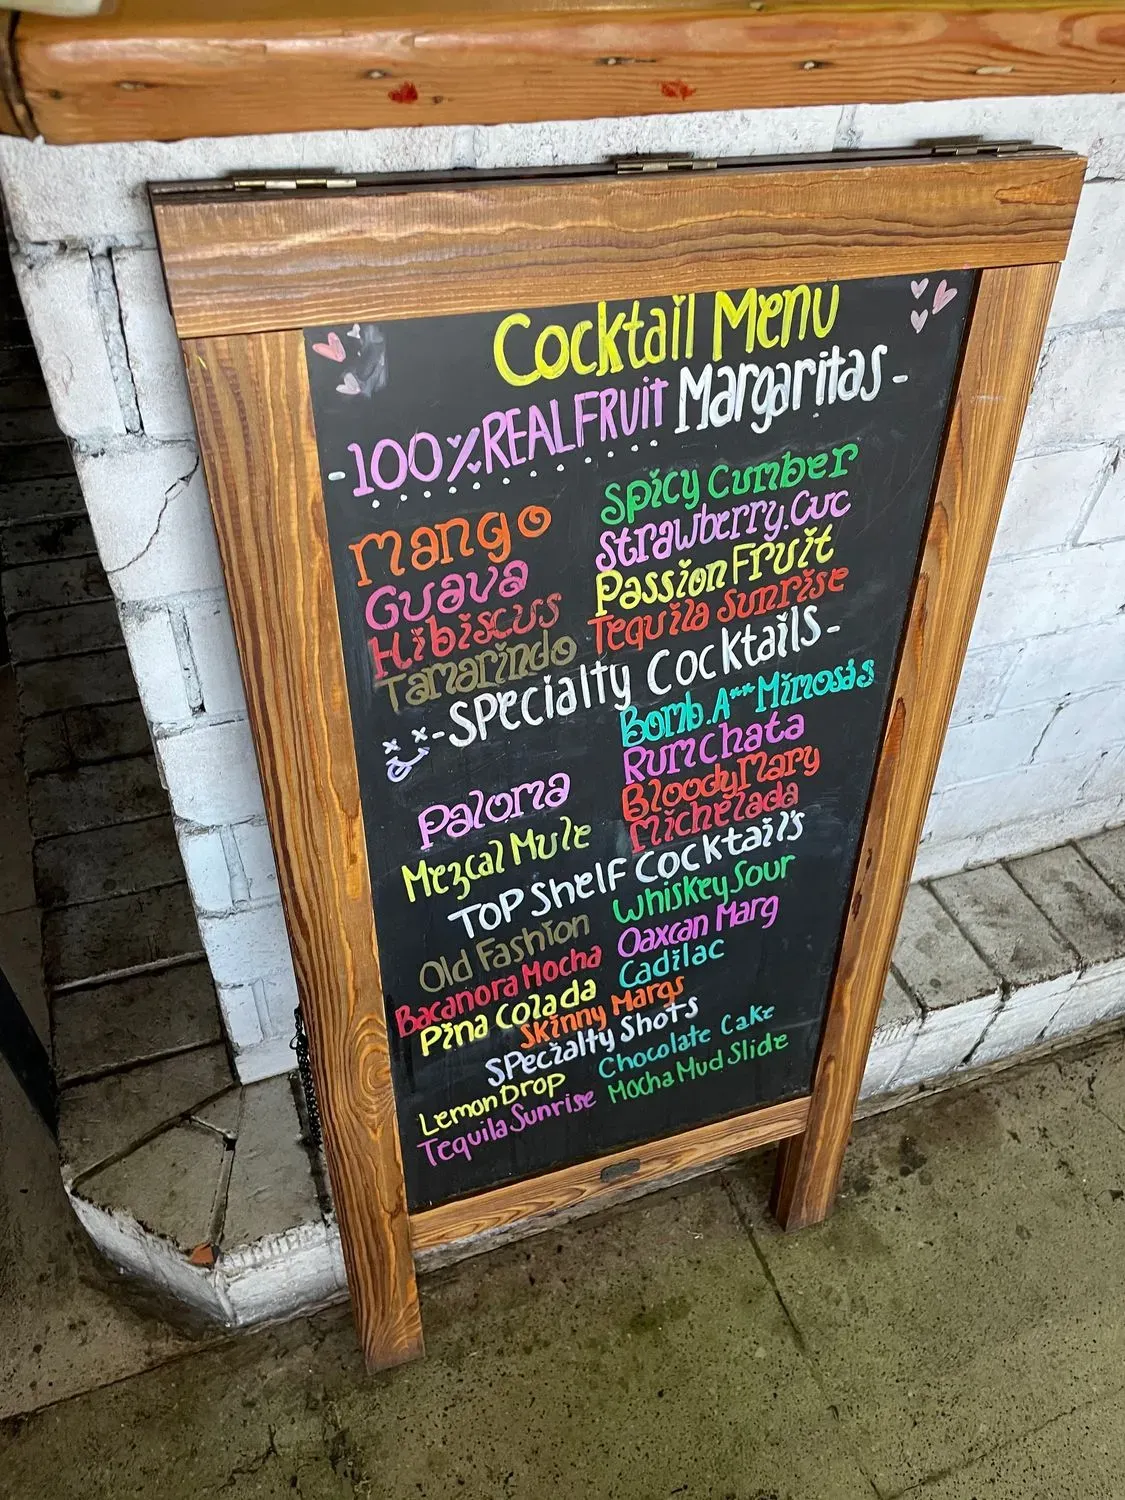 Cocktail Menu
-100% REAL FRUIT Margaritas-
Mango
Guava
Hibiscus
Tamarindo
Spicy Cumber
Strawberry.Cuc
Passion Fruit
Tequila Sunrise
-Specialty Cocktails-
Paloma
Mezcal Mule
Bomb.A** Mimosas
Rumchata
Bloody Mary
Michelada
Top Shelf Cocktail's
Old Fashion
Bacanora Mocha
Pina Colada
Whiskey Sour
Oaxcan Marg
Cadilac
Skinny Margs
Specialty Shots
Lemon Drop
Tequila Sunrise
Chocolate Cake
Mocha Mud Slide